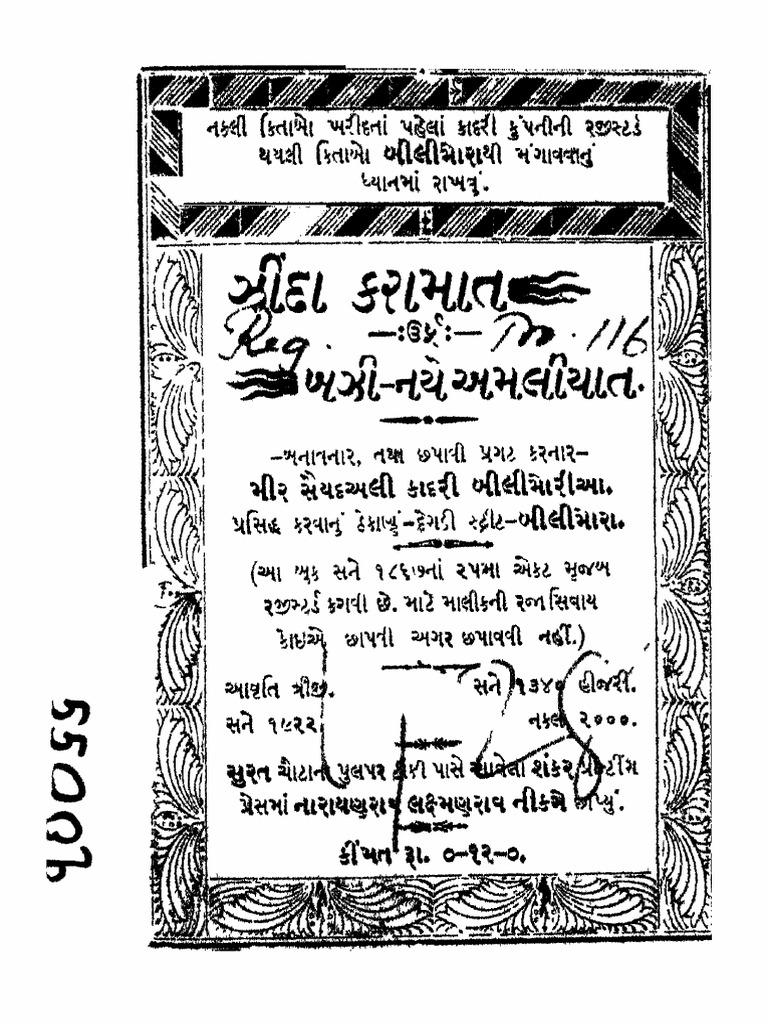 નકલી કિતાબો ખરીદતાં પહેલાં કાદરી કુંપનીની રજીસ્ટર્ડ
થયલી કિતાબો બીલીમોરાથી મંગાવવાનું
ધ્યાનમાં રાખવું.
ઝીંદા કરામાત
—:ઉર્ફ:—
Reg. No. 116
ખઝી-નયે અમલીયાત.
-બનાવનાર, તથા છપાવી પ્રગટ કરનાર-
મીર સૈયદઅલી કાદરી બીલીમોરીઆ.
પ્રસિદ્ધ કરવાનું ઠેકાણું-દેગડી સ્ટ્રીટ-બીલીમોરા.
(આ બુક સને ૧૮૬૭નાં ૨૫મા એકટ મુજબ
રજીસ્ટર્ડ કરાવી છે. માટે માલીકની રજા સિવાય
કોઇએ છાપવી અગર છપાવવી નહીં.)
આવૃતિ ત્રીજી. સને ૧૩૪૦ હીજરી.
સને ૧૯૨૨. નકલ ૨૦૦૦.
સુરત ચૌટાના પુલપર ટાંકી પાસે આવેલા શંકર પ્રિન્ટીંગ
પ્રેસમાં નારાયણરાવ લક્ષ્મણરાવ નીકમે છાપ્યું.
કીંમત રૂા. ૦-૧૨-૦.